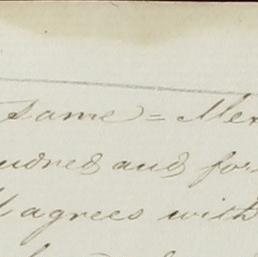 same = Mer
undred and for
agrees with